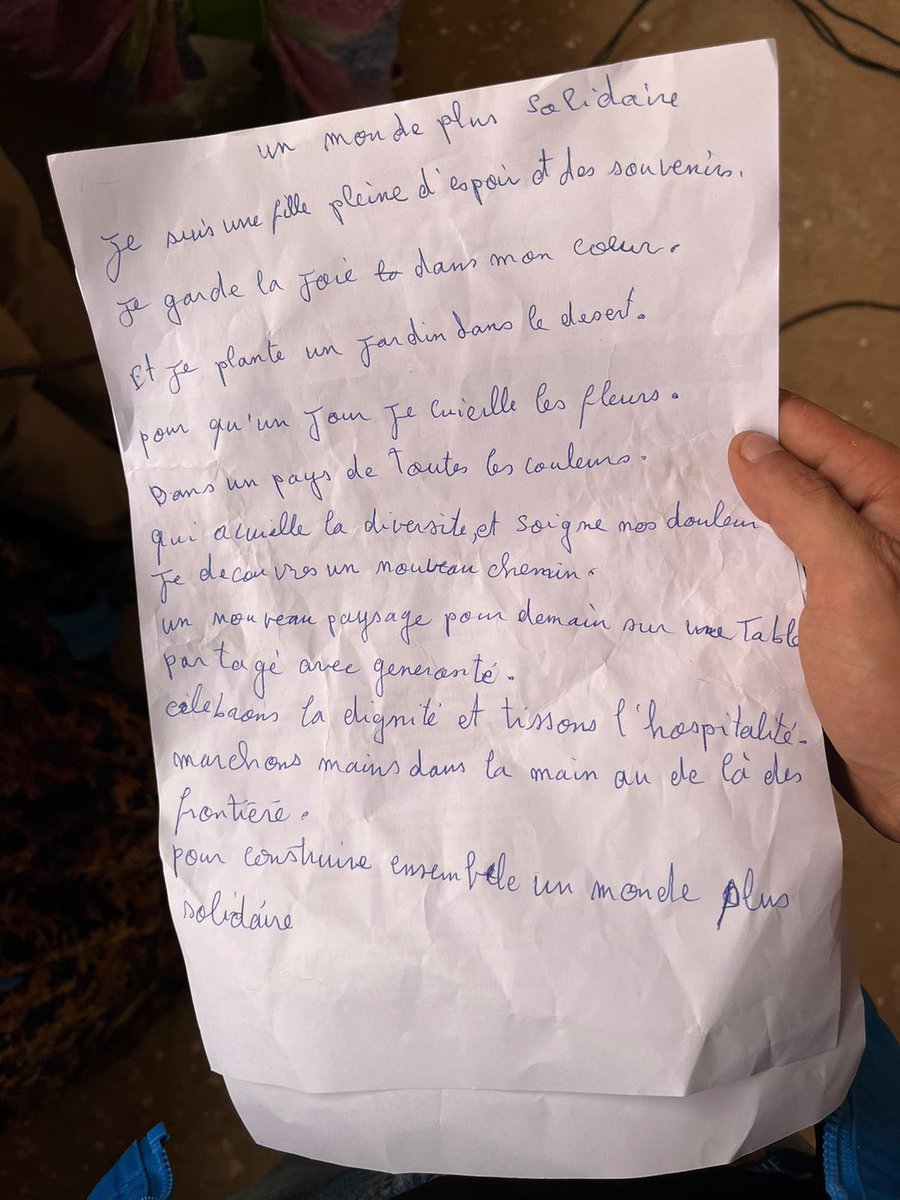 un monde plus solidaire
Je suis une fille pleine d'espoir et des souvenirs.
Je garde la joie dans mon coeur.
Et je plante un jardin dans le desert.
pour qu'un jour je cuieille les fleurs.
Dans un pays de toutes les couleurs.
qui acuielle la diversite, et soigne nos douleur
Je decouvres un nouveau chemin.
un nouveau paysage pour demain sur une Table
partagé avec generosité.
célébrons la dignité et tissons l'hospitalité.
marchons mains dans la main au de là des
frontiéré.
pour construire ensemble un monde plus
solidaire